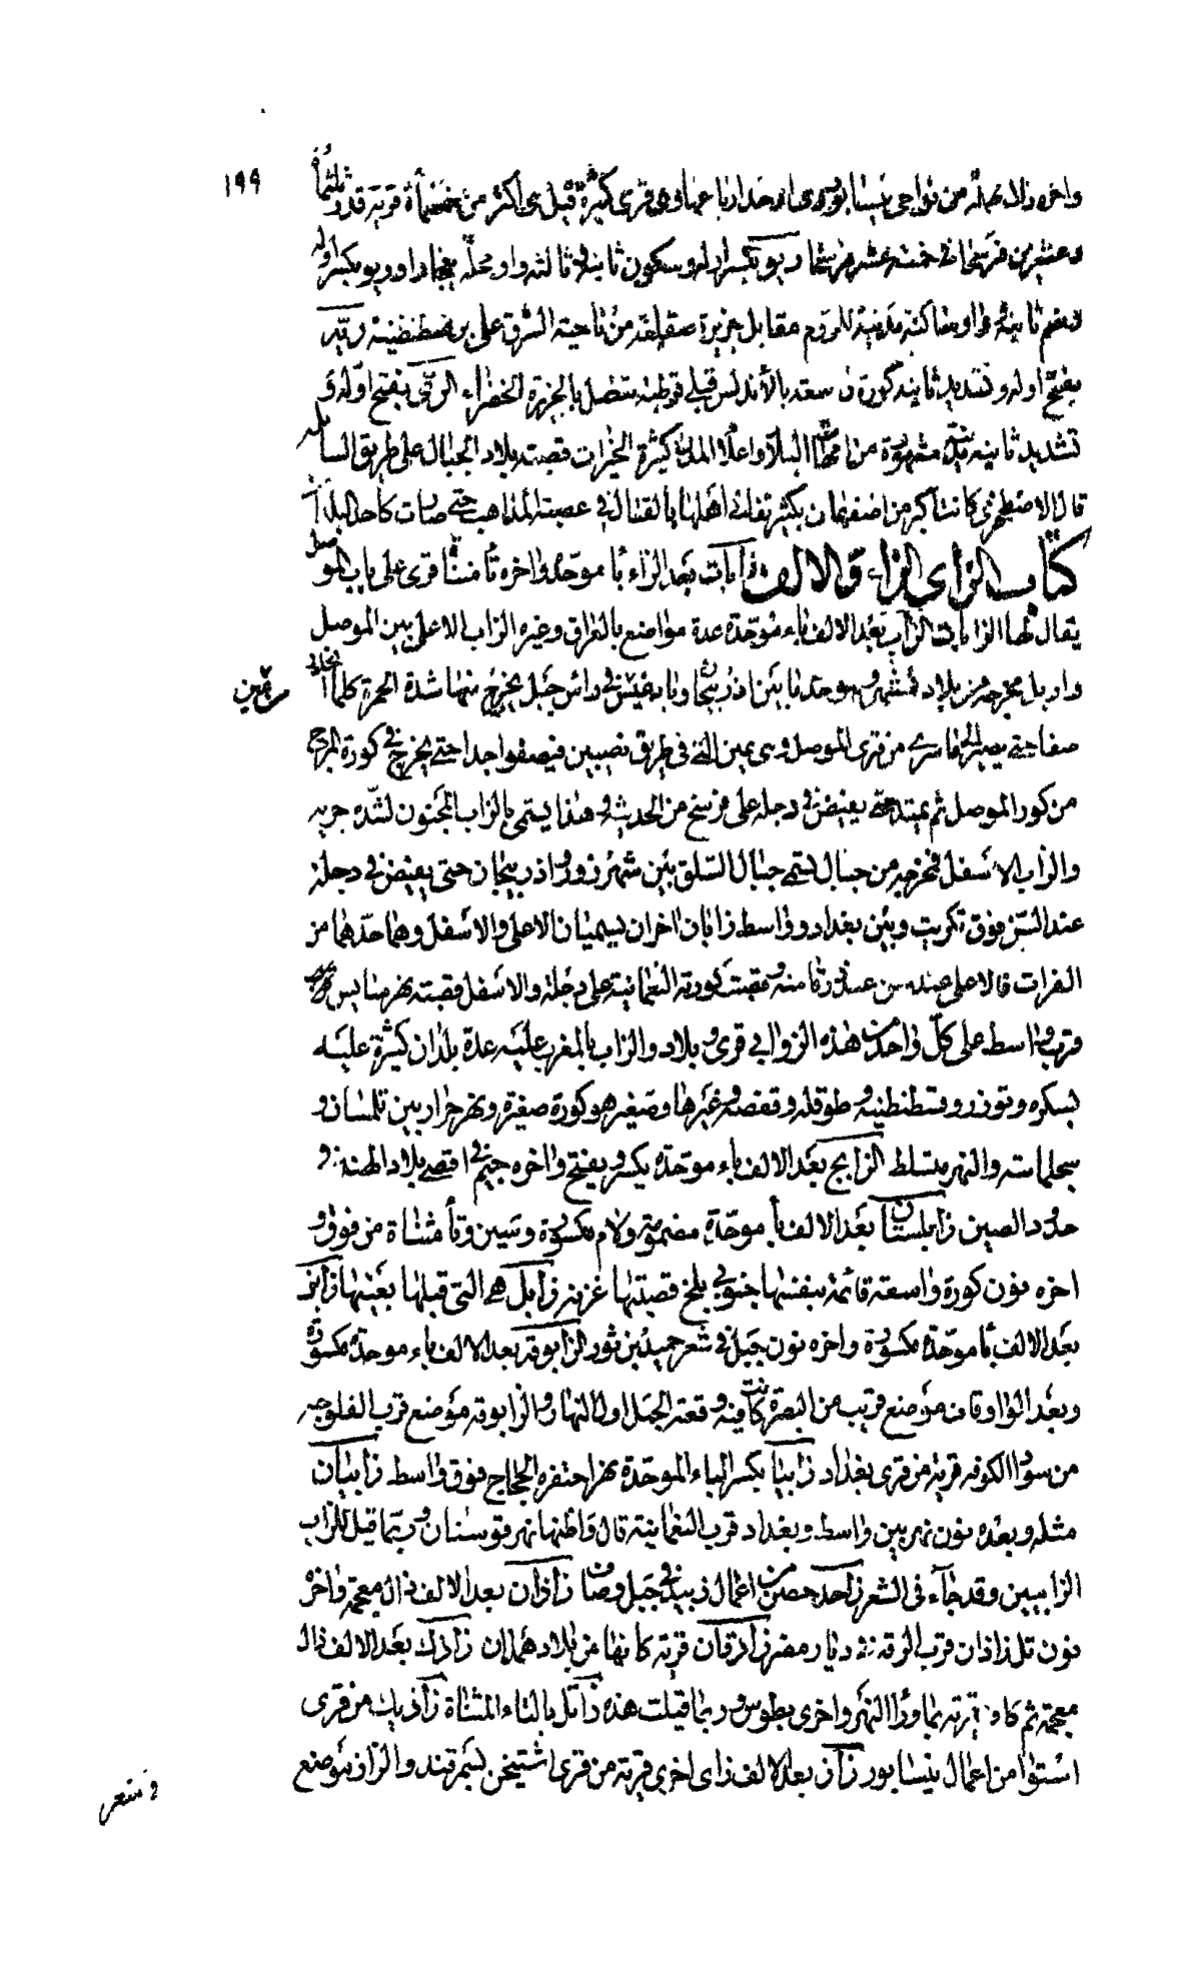 ١٩٩
واخره دال مهملة من نواحي نيسابور وهي قرى كثيرة قيل هي اكثر من خمسمأة قرية قدر ثلثمأة
وعشرين فرسخا في خمسة عشر فرسخا ريو بكسر اوله وسكون ثانيه ثالثه واو محلة ببخارا وريو بكسر اوله
وضم ثانيه واو ساكنة مدينة للروم مقابل جزيرة صقلية من ناحية الشرق على بر قسطنطينية ريّه
بفتح اوله وتشديد ثانيه كورة واسعة بالأندلس قبلي قرطبة متصل بالجزيرة الخضراء الريّ بفتح اوله و
تشديد ثانيه مدينة مشهورة من امهات البلاد واعلام المدن كثيرة الخيرات قصبة بلاد الجبال على طريق السابلة
قال الاصطخري كانت اكبر من اصفهان بكثير تفانى اهلها بالقتال في عصبية المذاهب حتى صارت كاحد البلدان
كتاب الزاى الزاء والالف زابات بعد الزاء بأ موحدة واخره تأ مثناة قرى على باب الموصل
يقال لها الزابات الزاب بعد الالف باء موحدة عدة مواضع بالعراق وغيره الزاب الاعلى بين الموصل
واربل مخرجه من بلاد مشهورة وحدها بين اذربيجان وبابغيش في رأس جبل يخرج منها شدة الحمرة كلما انحدر
صفا حتى يصير الى قرية من قرى الموصل وهي يمين التي في طريق نصيبين فيصفوا جدا حتى يخرج في كورة المرج
من كور الموصل ثم يمتد حتى يفيض في دجلة على فرسخ من الحديثة وهذا يسمى بالزاب المجنون لشدة جريه
والزاب الاسفل فمخرجه من جبال تسمى جبال السلق بين شهرزور واذربيجان حتى يفيض في دجلة
عند السن فوق تكريت وبين بغداد وواسط زابان اخران يسميان الاعلى والاسفل وهما حدّهما من
الفرات فالاعلى عند وقصبة كورته النعمانية على دجلة والاسفل قصبته نهر سابس
قرب واسط على كلّ واحد من هذه الزوابي قرى وبلاد والزاب بالمغرب عليه عدة بلدان كثيرة عليه
بسكرة وتوزر وقسطنطينة وطولقة وقفصة وغيرها وصغير هو كورة صغيرة ونهر جرار بين تلمسان و
سجلماسة والنهر متسلط الزابج بعد الالف باء موحدة بكسر ويفتح واخره جيم في اقصى بلاد الهند و
حدود الصين زابلستان بعد الالف بأ موحدة مضمومة ولام مكسورة وسين وتأ مثناة من فوق و
اخره نون كورة واسعة قائمة بنفسها جنوبي بلخ قصبتها غزنة زابل هي التي قبلها بعينها زابن
بعد الالف بأ موحدة مكسورة واخره نون جبل في شعر حميد بن ثور الزابوقة بعد الالف باء موحدة مكسورة
وبعد الواو قاف موضع قريب من البصرة كانت فيه وقعة الجمل اول النهار والزابوقة موضع قرب الفلوجة
من سواد الكوفة قرية من قرى بغداد زابيا بكسر الباء الموحدة نهر احتفره الحجاج فوق واسط زابيان
مثله وبعده نون نهر بين واسط وبغداد قرب النعمانية قال واظنها نهر قوسان وربما قيل للزاب
الزابيين وقد جاء في الشعر زاحد حصن من اعمال زبيد في جبل وصاب زاذان بعد الالف ذال معجمة واخره
نون تل زاذان قرب الرقة في ديار مضر زاذقان قرية كانها من بلاد همدان زاذك بعد الالف ذال
معجمة ثم كاف قرية بما وراء النهر واخرى بطوس وربما قيلت هذه زاتك بالتاء المثناة زاذيك من قرى
استوا من اعمال نيسابور زاز بعد الالف زاى اخرى قرية من قرى اشتيخن بسمرقند والزاز موضع